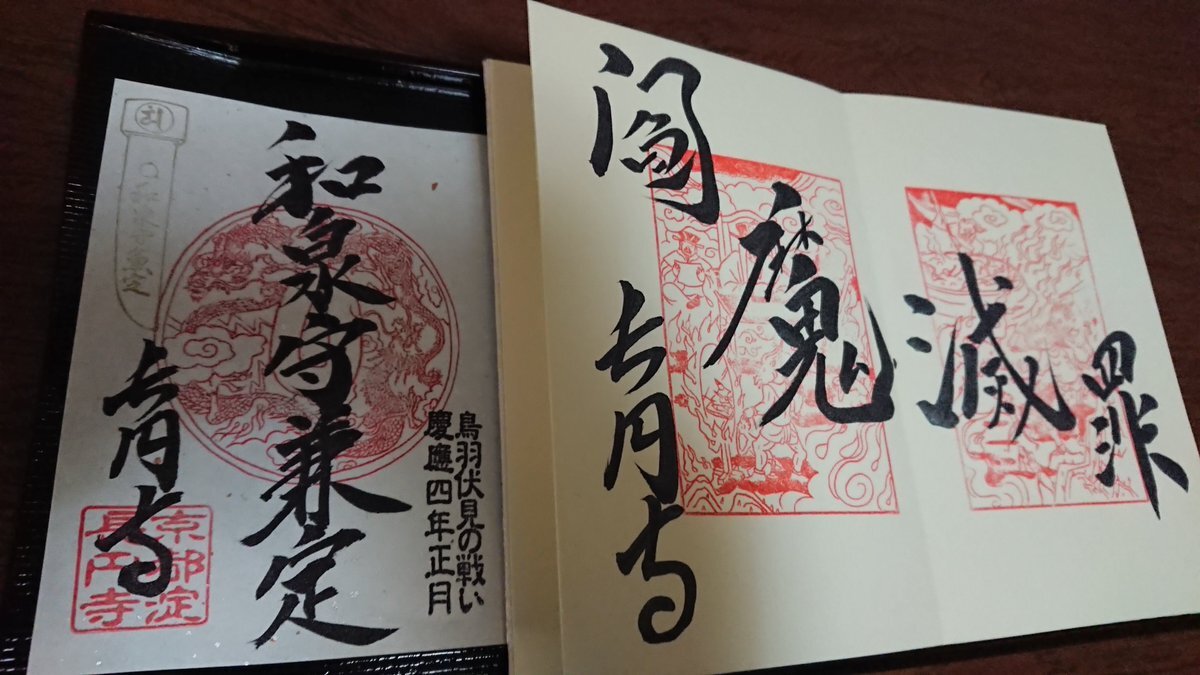 鳥羽伏見の戦い
慶應四年正月
和泉守兼定
長円寺
京都淀
長円寺
閻魔滅罪
長円寺